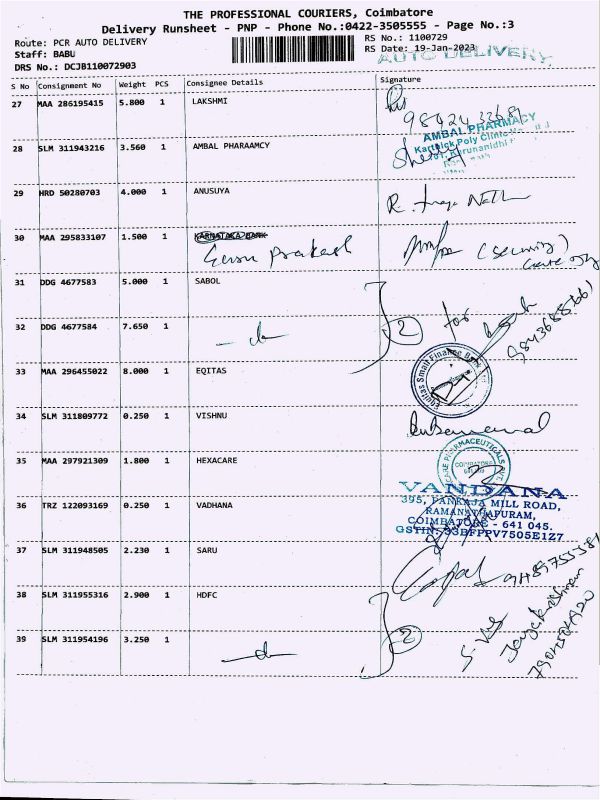 THE PROFESSIONAL COURIERS, Coimbatore
Delivery Runsheet - PNP - Phone No.:0422-3505555 - Page No.:3
Route: PCR AUTO DELIVERY
RS No.: 1100729
Staff: BABU
RS Date: 19-Jan-2023
AUTO DELIVERY
DRS No.: DCJB110072903
S No Consignment No Weight PCS Consignee Details Signature
27 MAA 286195415 5.800 1 LAKSHMI
28 SLM 311943216 3.560 1 AMBAL PHARAAMCY
AMBAL PHARMACY
29 HRD 50280703 4.000 1 ANUSUYA
30 MAA 295833107 1.500 1 KARNATAKA BANK
Prakash
(Security)
31 DDG 4677583 5.000 1 SABOL
for
32 DDG 4677584 7.650 1
2
33 MAA 296455022 8.000 1 EQITAS
Equitas Small Finance Bank
34 SLM 311809772 0.250 1 VISHNU
35 MAA 297921309 1.800 1 HEXACARE
36 TRZ 122093169 0.250 1 VADHANA
VANDANA
395, PANKAJA MILL ROAD,
RAMANATHAPURAM,
COIMBATORE - 641 045.
GSTIN: 33BFPPV7505E1Z7
37 SLM 311948505 2.230 1 SARU
38 SLM 311955316 2.900 1 HDFC
39 SLM 311954196 3.250 1
2